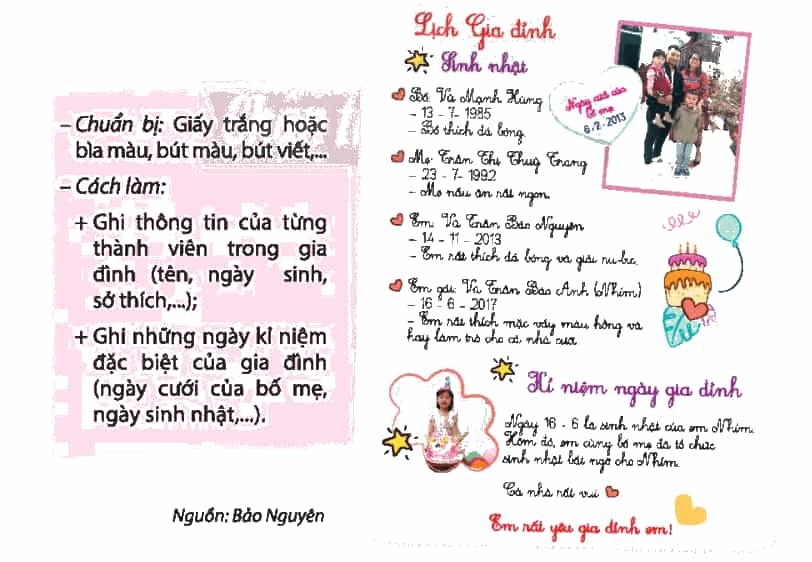 – Chuẩn bị: Giấy trắng hoặc
bìa màu, bút màu, bút viết,...
– Cách làm:
+ Ghi thông tin của từng
thành viên trong gia
đình (tên, ngày sinh,
sở thích,...);
+ Ghi những ngày kỉ niệm
đặc biệt của gia đình
(ngày cưới của bố mẹ,
ngày sinh nhật,...).
Nguồn: Bảo Nguyên
Lịch Gia đình
Sinh nhật
Bố: Vũ Mạnh Hùng
– 13 - 7- 1985
– Bố thích đá bóng.
Ngày cưới của
bố mẹ
6-2-2013
Mẹ: Trần Thị Thuỳ Trang
– 23 - 7- 1992
– Mẹ nấu ăn rất ngon.
Em: Vũ Trần Bảo Nguyên
– 14 - 11 - 2013
– Em rất thích đá bóng và giải ru-bic.
Em gái: Vũ Trần Bảo Anh (Nhím)
– 16 - 6 - 2017
– Em rất thích mặc váy màu hồng và
hay làm trò cho cả nhà cười.
Kỉ niệm ngày gia đình
Ngày 16 - 6 là sinh nhật của em Nhím.
Hôm đó, em cùng bố mẹ đã tổ chức
sinh nhật bất ngờ cho Nhím.
Cả nhà rất vui
Em rất yêu gia đình em!